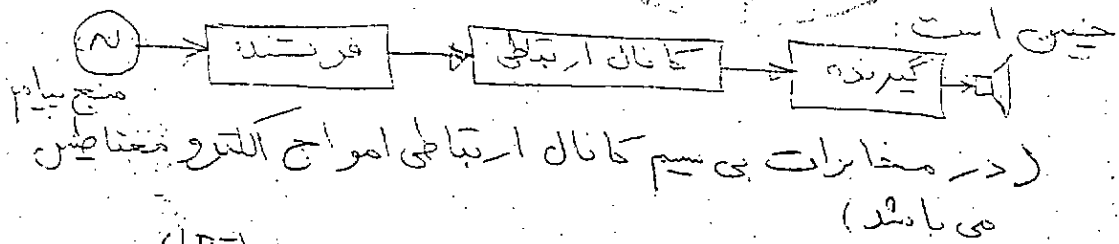 چنین است:
~
فرستنده
کانال ارتباطی
گیرنده
منبع پیام
(در مخابرات بی سیم کانال ارتباطی امواج الکترو مغناطیس
می باشد)